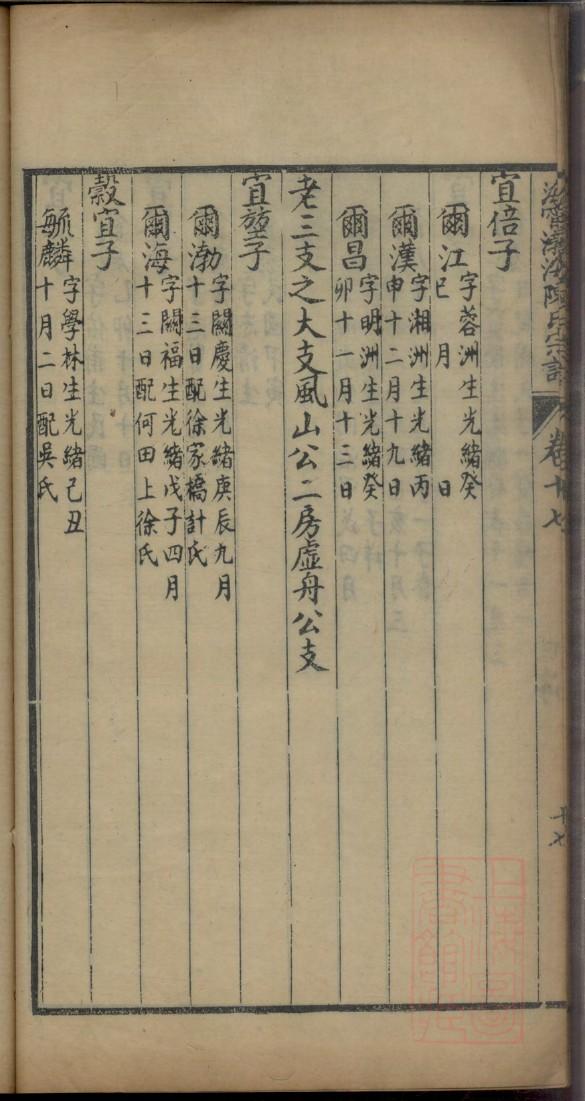 宗譜 卷十七
十七
宜倍子
爾江 字蓉洲生光緒癸
巳 月 日
爾漢 字湘洲生光緒丙
申十二月十九日
爾昌 字明洲生光緒癸
卯十一月十三日
老三支之大支風山公二房虛舟公支
宜堃子
爾渤 字關慶生光緒庚辰九月
十三日配徐家橋計氏
爾海 字關福生光緒戊子四月
十三日配何田上徐氏
穀宜子
毓麟 字學林生光緒己丑
十月二日配吳氏